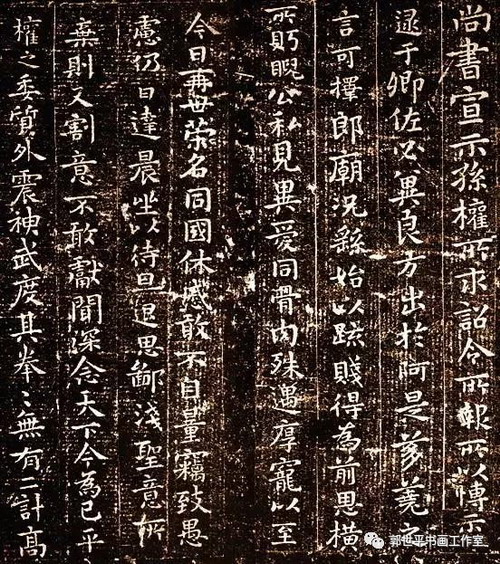 尚書宣示孫權所求詔令所報所以博示
逮于卿佐必冀良方出於阿是芻蕘之
言可擇郎廟況繇始以疏賤得為前恩橫
所眄睨公私見異愛同骨肉殊遇厚寵以至
今日再世榮名同國休慼敢不自量竊致愚
慮仍日達晨坐以待旦退思鄙淺聖意所
棄則又割意不敢獻聞深念天下今為已平
權之委質外震神武度其拳〻無有二計高
郭世平书画工作室